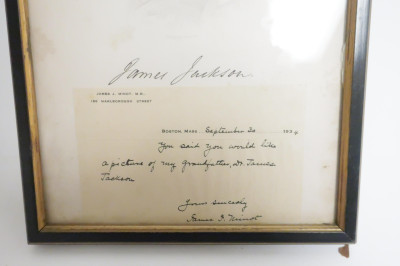 James Jackson
JAMES J. MINOT, M.D.
188 MARLBOROUGH STREET
BOSTON, MASS. September 20 1934
You said you would like
a picture of my grandfather, Dr. James
Jackson
Yours sincerely
James J. Minot